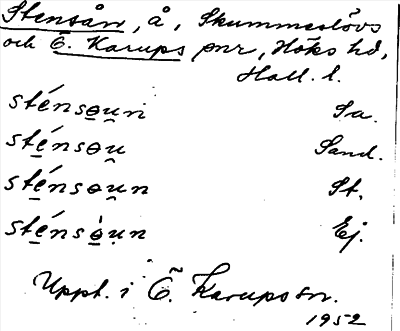 Stensån, å, Skummeslövs
och Ö. Karups snr, Höks hd,
Hall. l.
sténsəu̯n Sa.
stẹ́nsəu̯ Sand.
stẹ́nsəu̯n St.
stẹ́nsə̣́u̯n Ej.
Uppt. i Ö. Karups sn.
1952